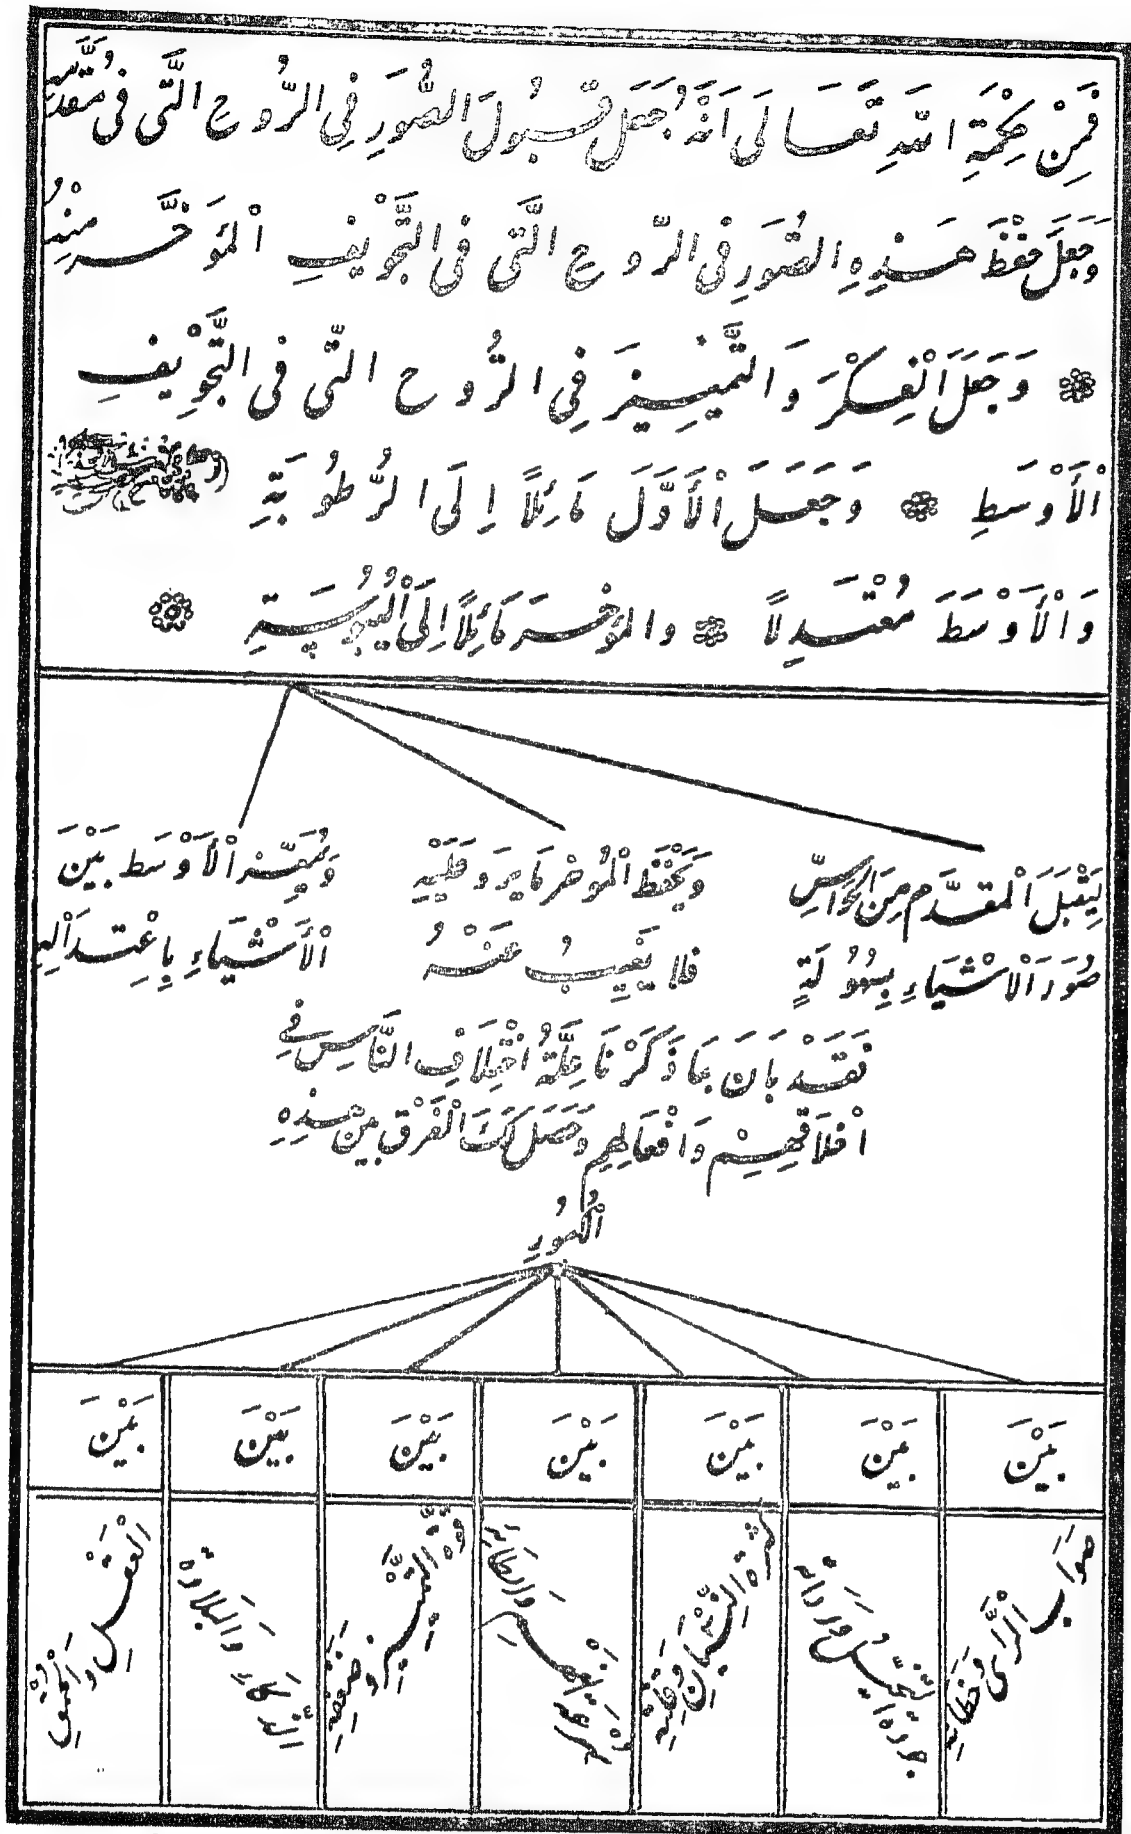 فَمِنْ حِكْمَةِ اللهِ تَعَالَى اَنَّهُ جَعَلَ قَبُولَ الصُّوَرِ فِي الرُّوحِ الَّتِى فِى مُقَدَّمِهِ
وَجَعَلَ حِفْظَ هَذِهِ الصُّوَرِ فِى الرّوحِ الَّتِى فِى التَّجْوِيْفِ الْمُؤَخَّرِ مِنْهُ
وَجَعَلَ الْفِكْرَ وَالتَّمْيِيزَ فِى الرُّوحِ الَّتِى فِى التَّجْوِيْفِ
الْأَوْسَطِ وَجَعَلَ الْأَوَّلَ مَائِلًا اِلَى الرُّطُوبَةِ
وَالْأَوْسَطَ مُعْتَدِلًا والمُؤَخَّرَ مَائِلًا اِلَى الْيُبُوسَةِ
لِيَقْبَلَ الْمقدَّم مِنَ الْحَوَاسِّ
صُوَرَ الْاشْيَاءِ بِسُهُولَةٍ
وَيَحْفَظَ الْمُؤخر مَا يَرِدُ عَلَيْهِ
فلا يَغِيبُ عَنْهُ
وَيُمَيِّز الْأَوْسَط بَيْنَ
الْأَشْيَاءِ بِاعْتِدَالِهِ
فَقَدْ بَانَ بِمَا ذَكَرْنَا عِلَّةُ اخْتِلَافِ النَّاسِ فِي
اخْلَاقِهِمْ وَافْعَالِهِمِ وَحَصَلَ لَكَ الْفَرْقُ بَيْنَ هذِهِ
الْأُمُورِ
بَيْنَ
بَيْنَ
بَيْنَ
بَيْنَ
بَيْنَ
بَيْنَ
بَيْنَ
صَوَابِ الْرَّأى وَخَطَائِهِ
جودة التخيُّل وَردائه
كثرة النِّسْيَانِ وَقِلَّتِهِ
قُوَّة التَّمْيِيزِ وَضَعْفِهِ
الذَّكَاءِ وَالْبَلَادَةِ
الْعَقْلِ وَالْحُمْقِ